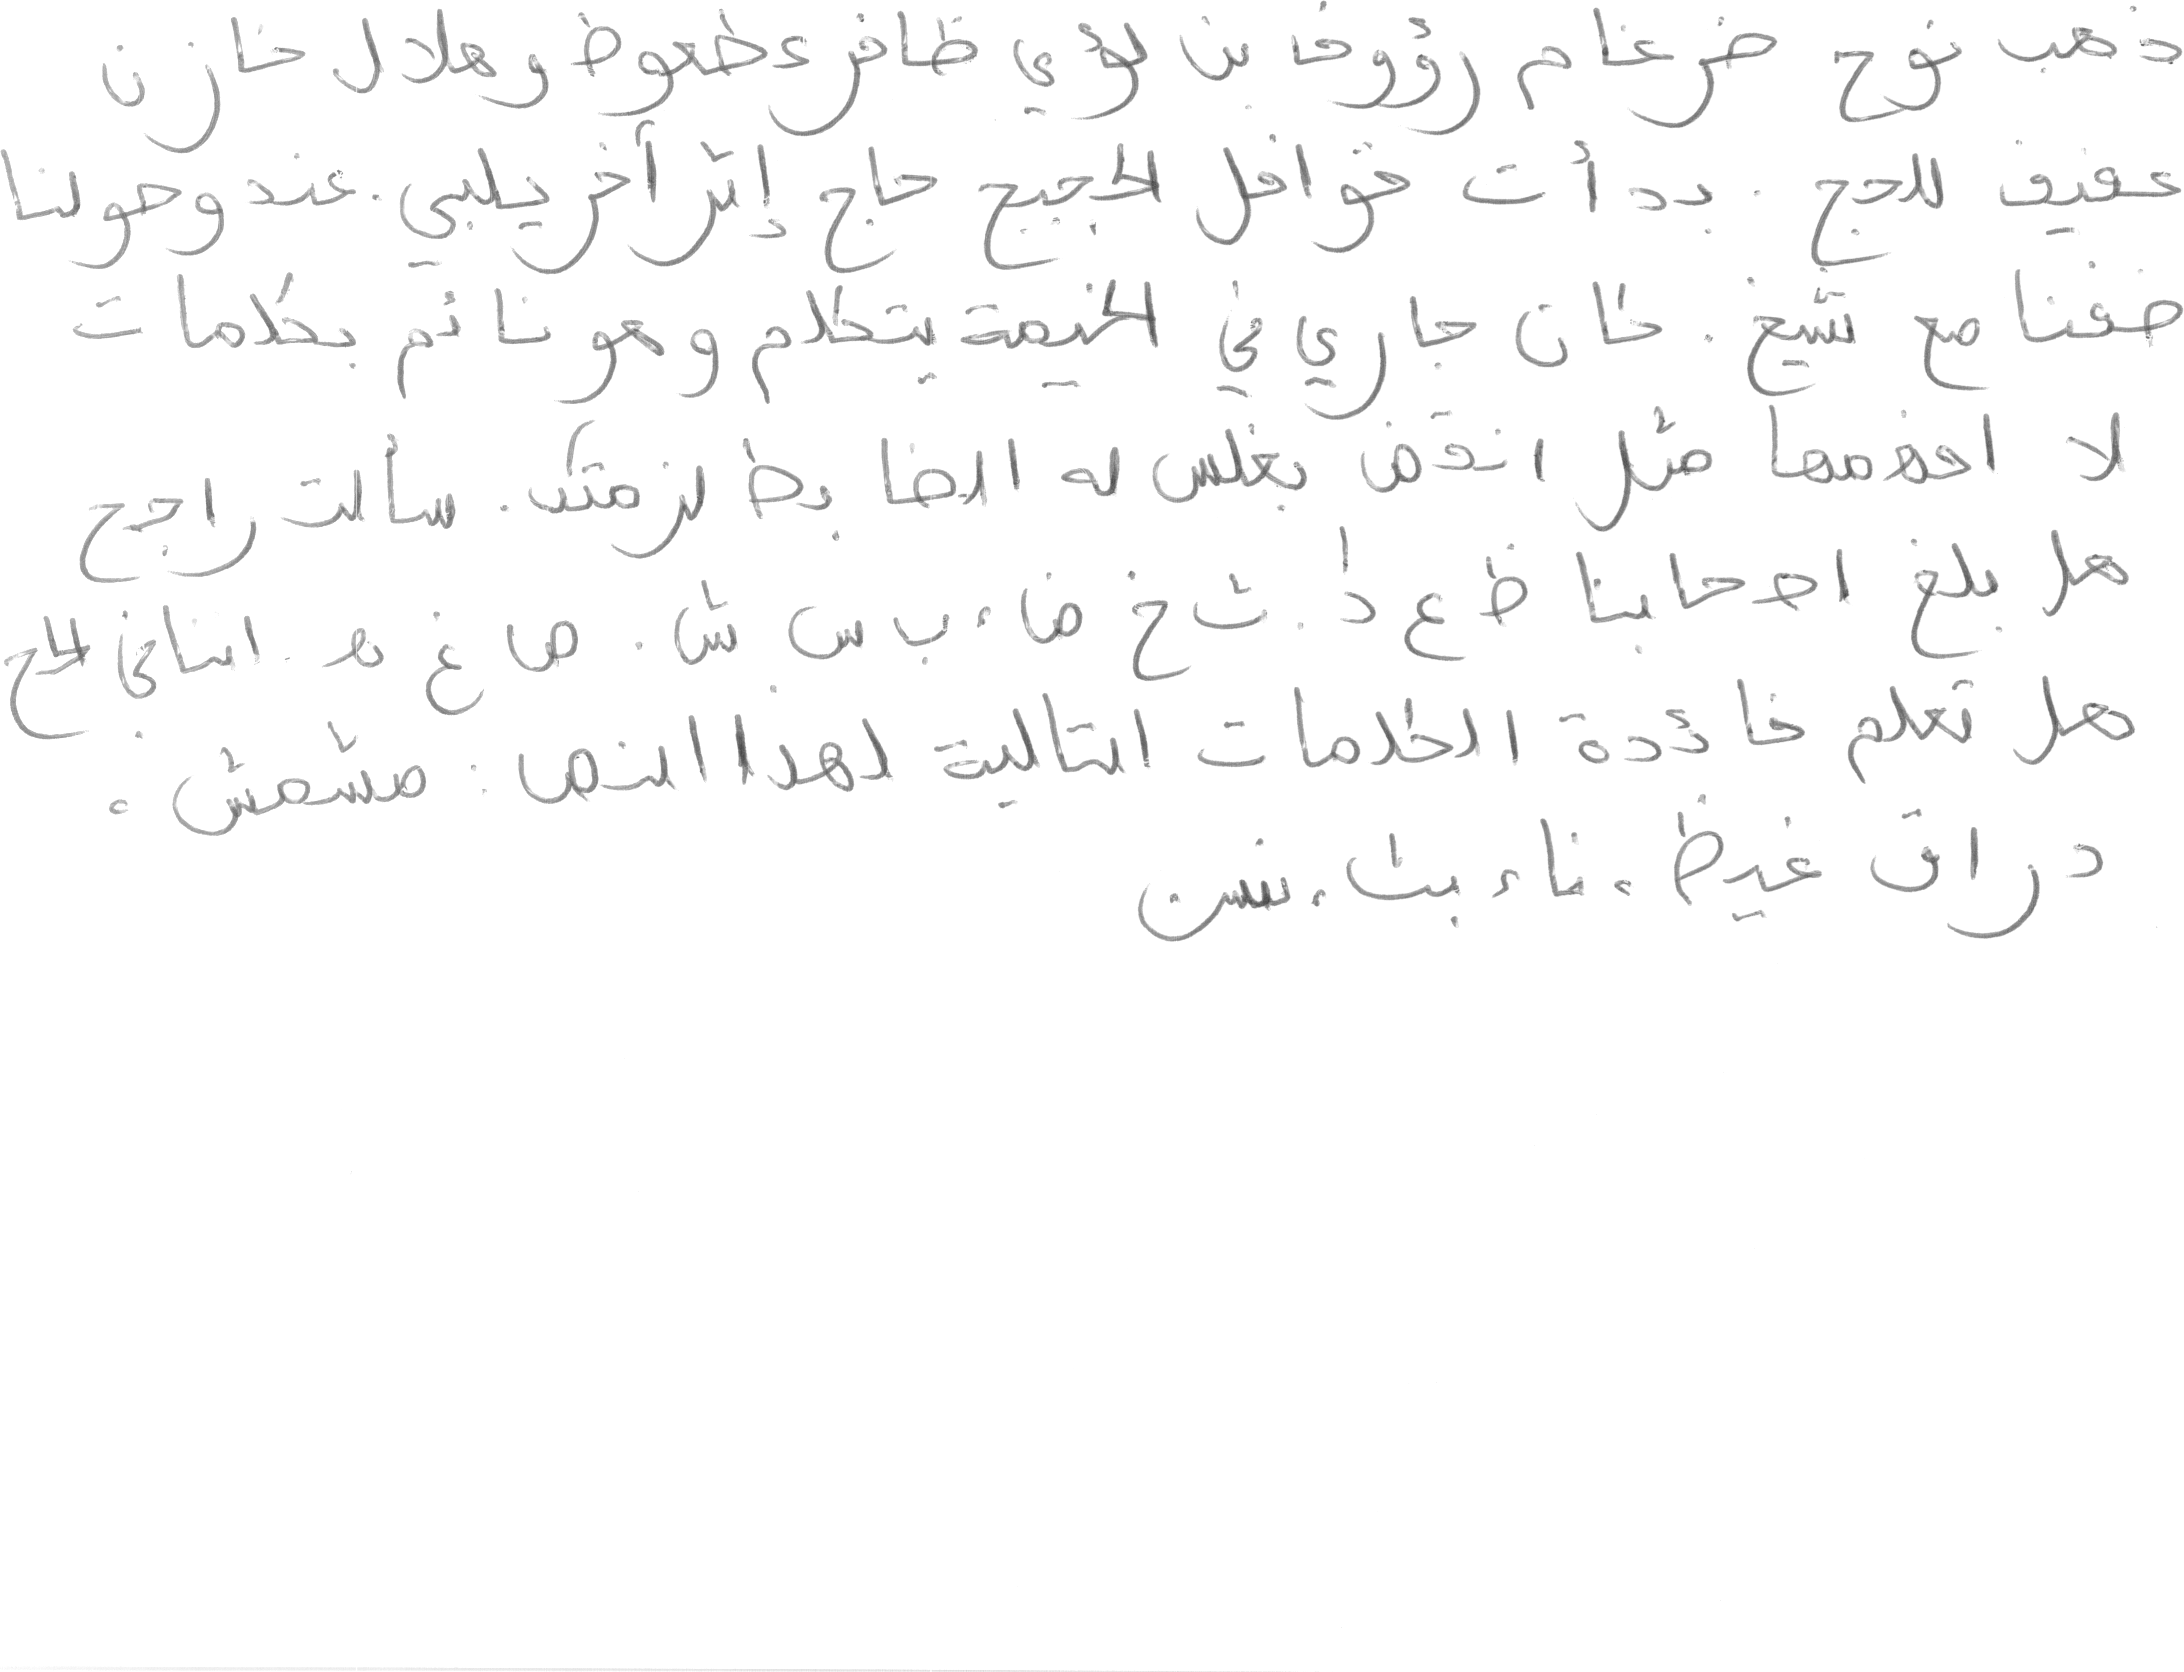 ذهب نوح ضرغام رؤوف بن لؤي ظافر عطعوط وهلال خازن
عفيف للحج . بدأت قوافل الحجيج حاج إثر آخر يلبي . عند وصولنا
ضفنا مع شيخ . كان جاري في الخيمة يتكلم وهو نائم بكلمات
لا افهمها مثل انقض بغلس له الضابط لزمتك . سألت راجح
هل بلغ اصحابنا ظ ع ذ . ث خ ض ، ب س ش . ص غ ه . اننا في الحج
هل تعلم فائدة الكلمات التالية لهذا النص : مشمش ،
دراق غيظ ، ناء ، بث ، نسن